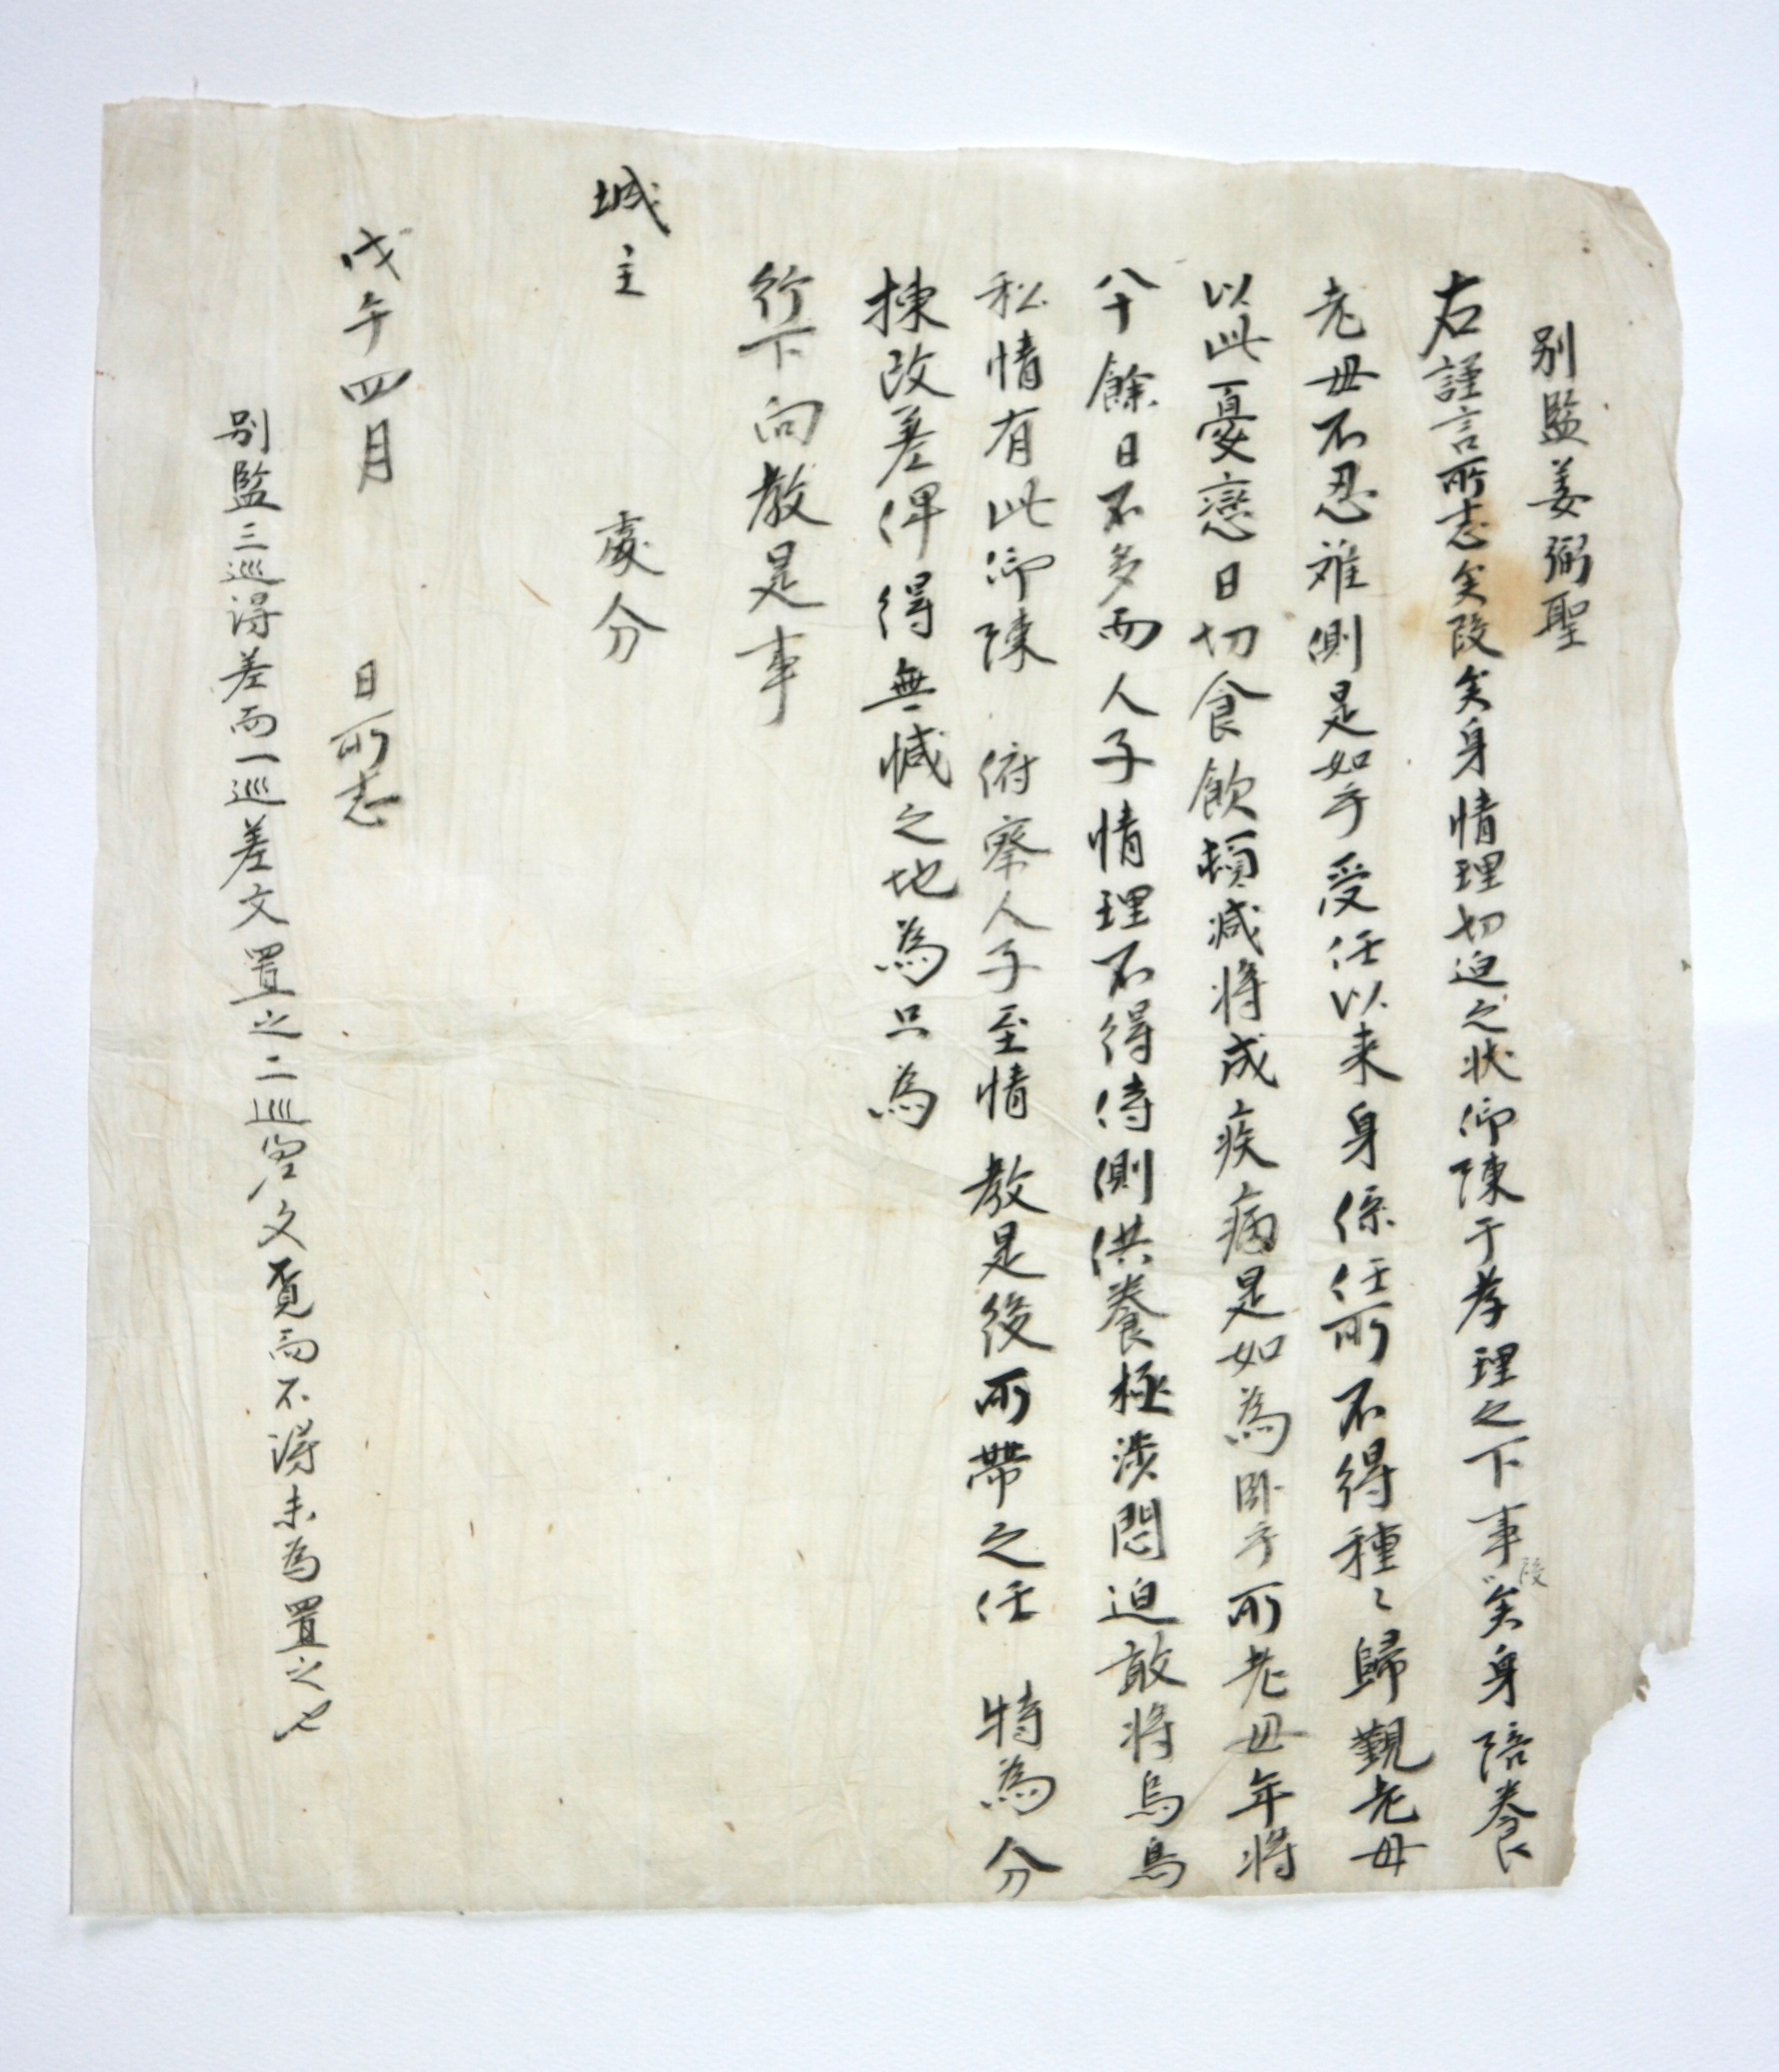 別監姜弼聖
右謹言所志矣段矣身情理切迫之狀仰陳于孝理之下事矣身段陪養
老母不忍難側是如乎受任以来身係任所不得種〻歸覲老母
以此憂戀日切食飮頓减將成疾病是如為卧乎所老母年將
八十餘日不多而人子情理不得侍側供養極涉悶迫敢將烏鳥
私情有此仰陳 俯察人子至情 教是後所帶之任 特為分
揀改差俾得無憾之地為只為
行下向教是事
城主 處分
戊午四月 日所志
別監三巡得差而一巡差文置之二巡 文覓而不得未為置之